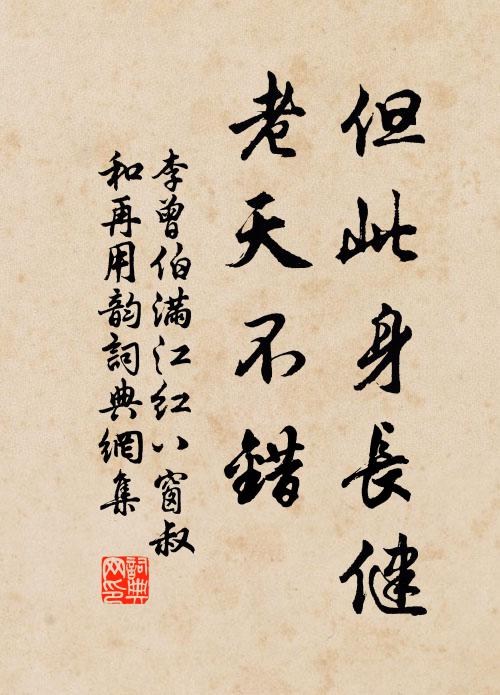 但此身長健
老天不錯
李曾伯滿江紅八窗叔
和再用韵詞典網集
詞典
网印